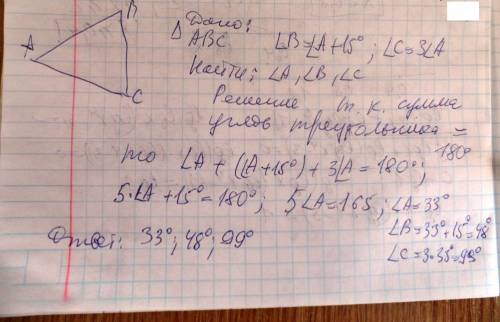 B
A
C
Дано:
△ ABC ∠B=∠A+15°; ∠C=3∠A
Найти: ∠A, ∠B, ∠C
Решение т.к. сумма
углов треугольника =
180°
то ∠A + (∠A+15°) + 3∠A = 180°;
5·∠A + 15° = 180°; 5∠A = 165; ∠A = 33°
∠B = 33°+15° = 48°
Ответ: 33°; 48°; 99°
∠C = 3·33° = 99°